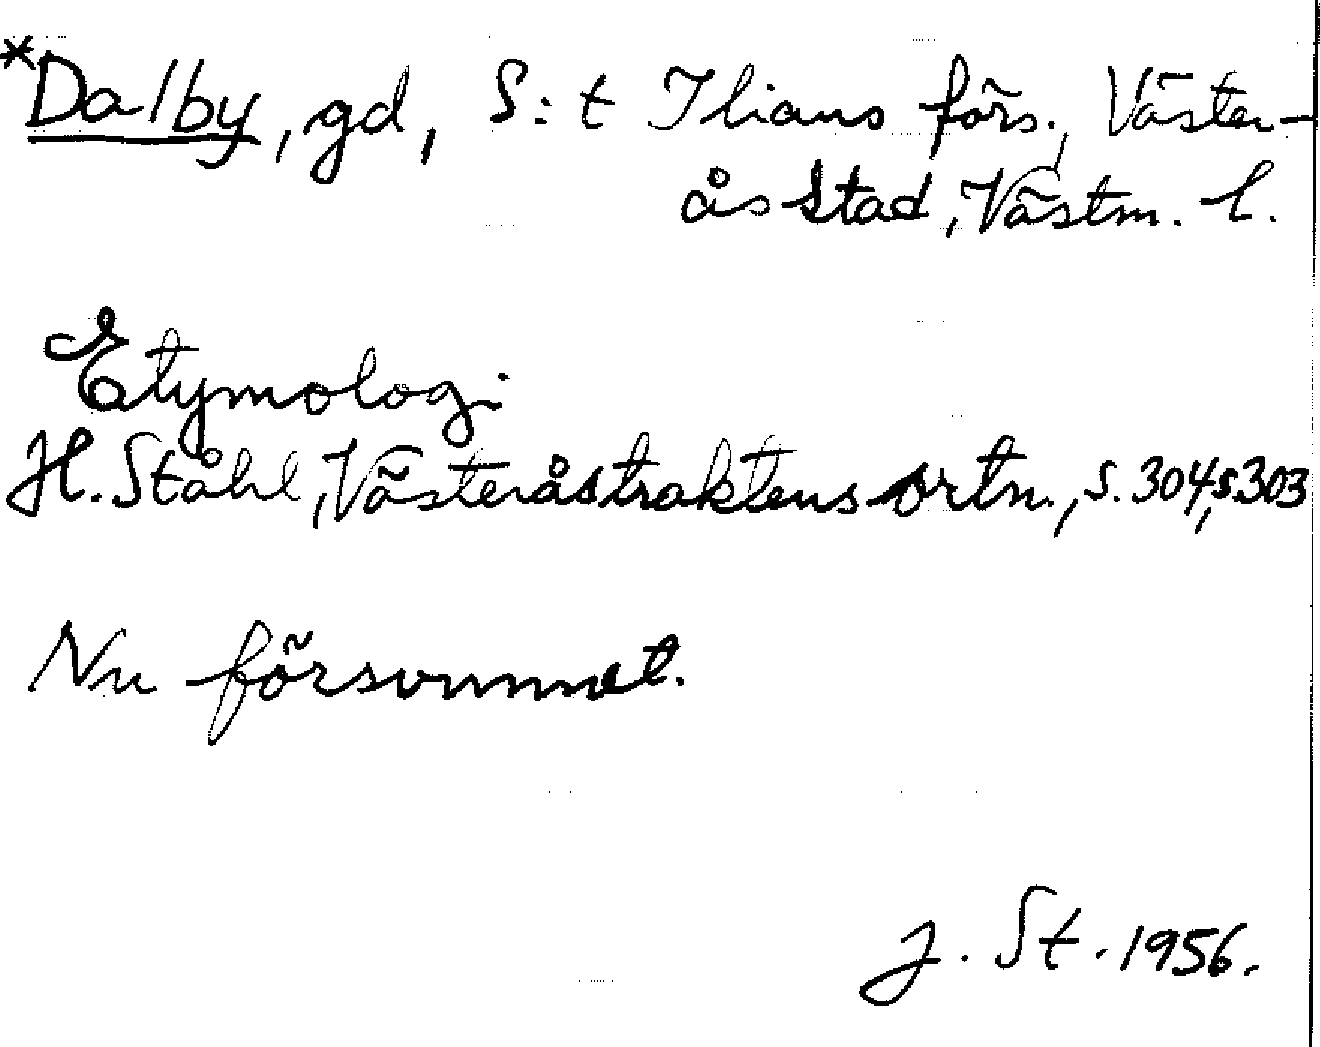 *Dalby, gd, S:t Ilians förs., Väster-
ås stad, Västm. l.
Etymologi
H. Ståhl, Västeråstraktens ortn., s. 304, s. 303
Nu försvunnet.
J. St. 1956.